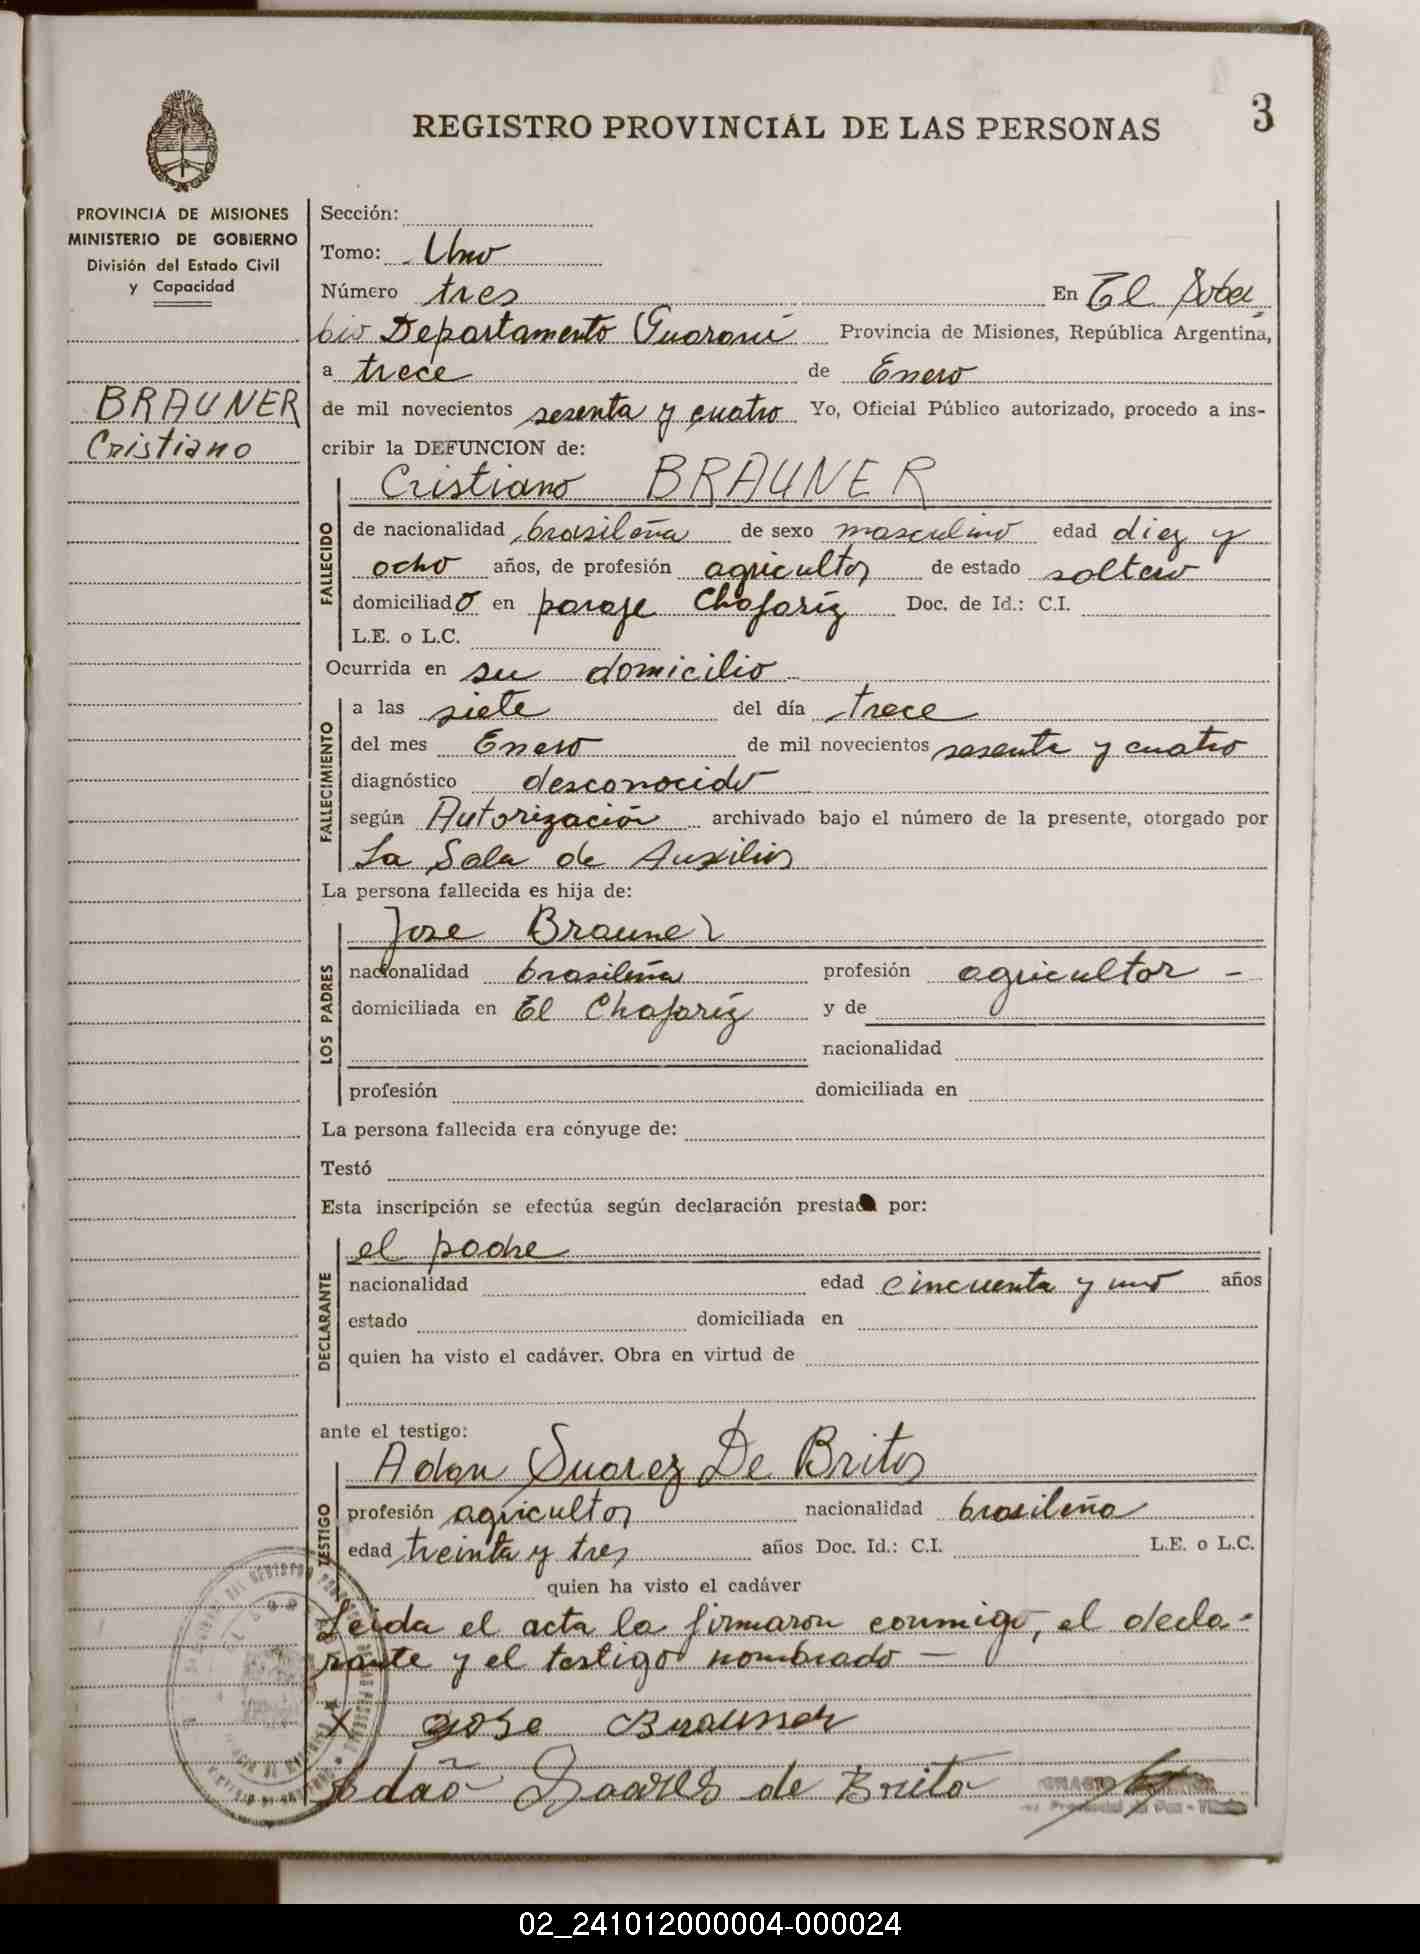 3
REGISTRO PROVINCIAL DE LAS PERSONAS
PROVINCIA DE MISIONES
MINISTERIO DE GOBIERNO
División del Estado Civil
y Capacidad
BRAUNER
Cristiano
Sección:
Tomo: Uno
Número tres En El Sober
bio Departamento Guaraní Provincia de Misiones, República Argentina,
a trece de Enero
de mil novecientos sesenta y cuatro Yo, Oficial Público autorizado, procedo a ins-
cribir la DEFUNCION de:
Cristiano BRAUNER
FALLECIDO
de nacionalidad brasileña de sexo masculino edad diez y
ocho años, de profesión agricultor de estado soltero
domiciliado en paraje Chafariz Doc. de Id.: C.I.
L.E. o L.C.
Ocurrida en su domicilio
FALLECIMIENTO
a las siete del día trece
del mes Enero de mil novecientos sesenta y cuatro
diagnóstico desconocido
según Autorización archivado bajo el número de la presente, otorgado por
La Sala de Auxilios
La persona fallecida es hija de:
LOS PADRES
Jose Brauner
nacionalidad brasileña profesión agricultor -
domiciliada en El Chafariz y de
nacionalidad
profesión domiciliada en
La persona fallecida era cónyuge de:
Testó
Esta inscripción se efectúa según declaración prestada por:
DECLARANTE
el padre
nacionalidad edad cincuenta y uno años
estado domiciliada en
quien ha visto el cadáver. Obra en virtud de
ante el testigo:
TESTIGO
Adan Suarez De Britos
profesión agricultor nacionalidad brasileña
edad treinta y tres años Doc. Id.: C.I. L.E. o L.C.
quien ha visto el cadáver
Leida el acta la firmaron conmigo, el decla-
rante y el testigo nombrado -
X Jose Brauner
Adaõ Soares de Brito
02_241012000004-000024